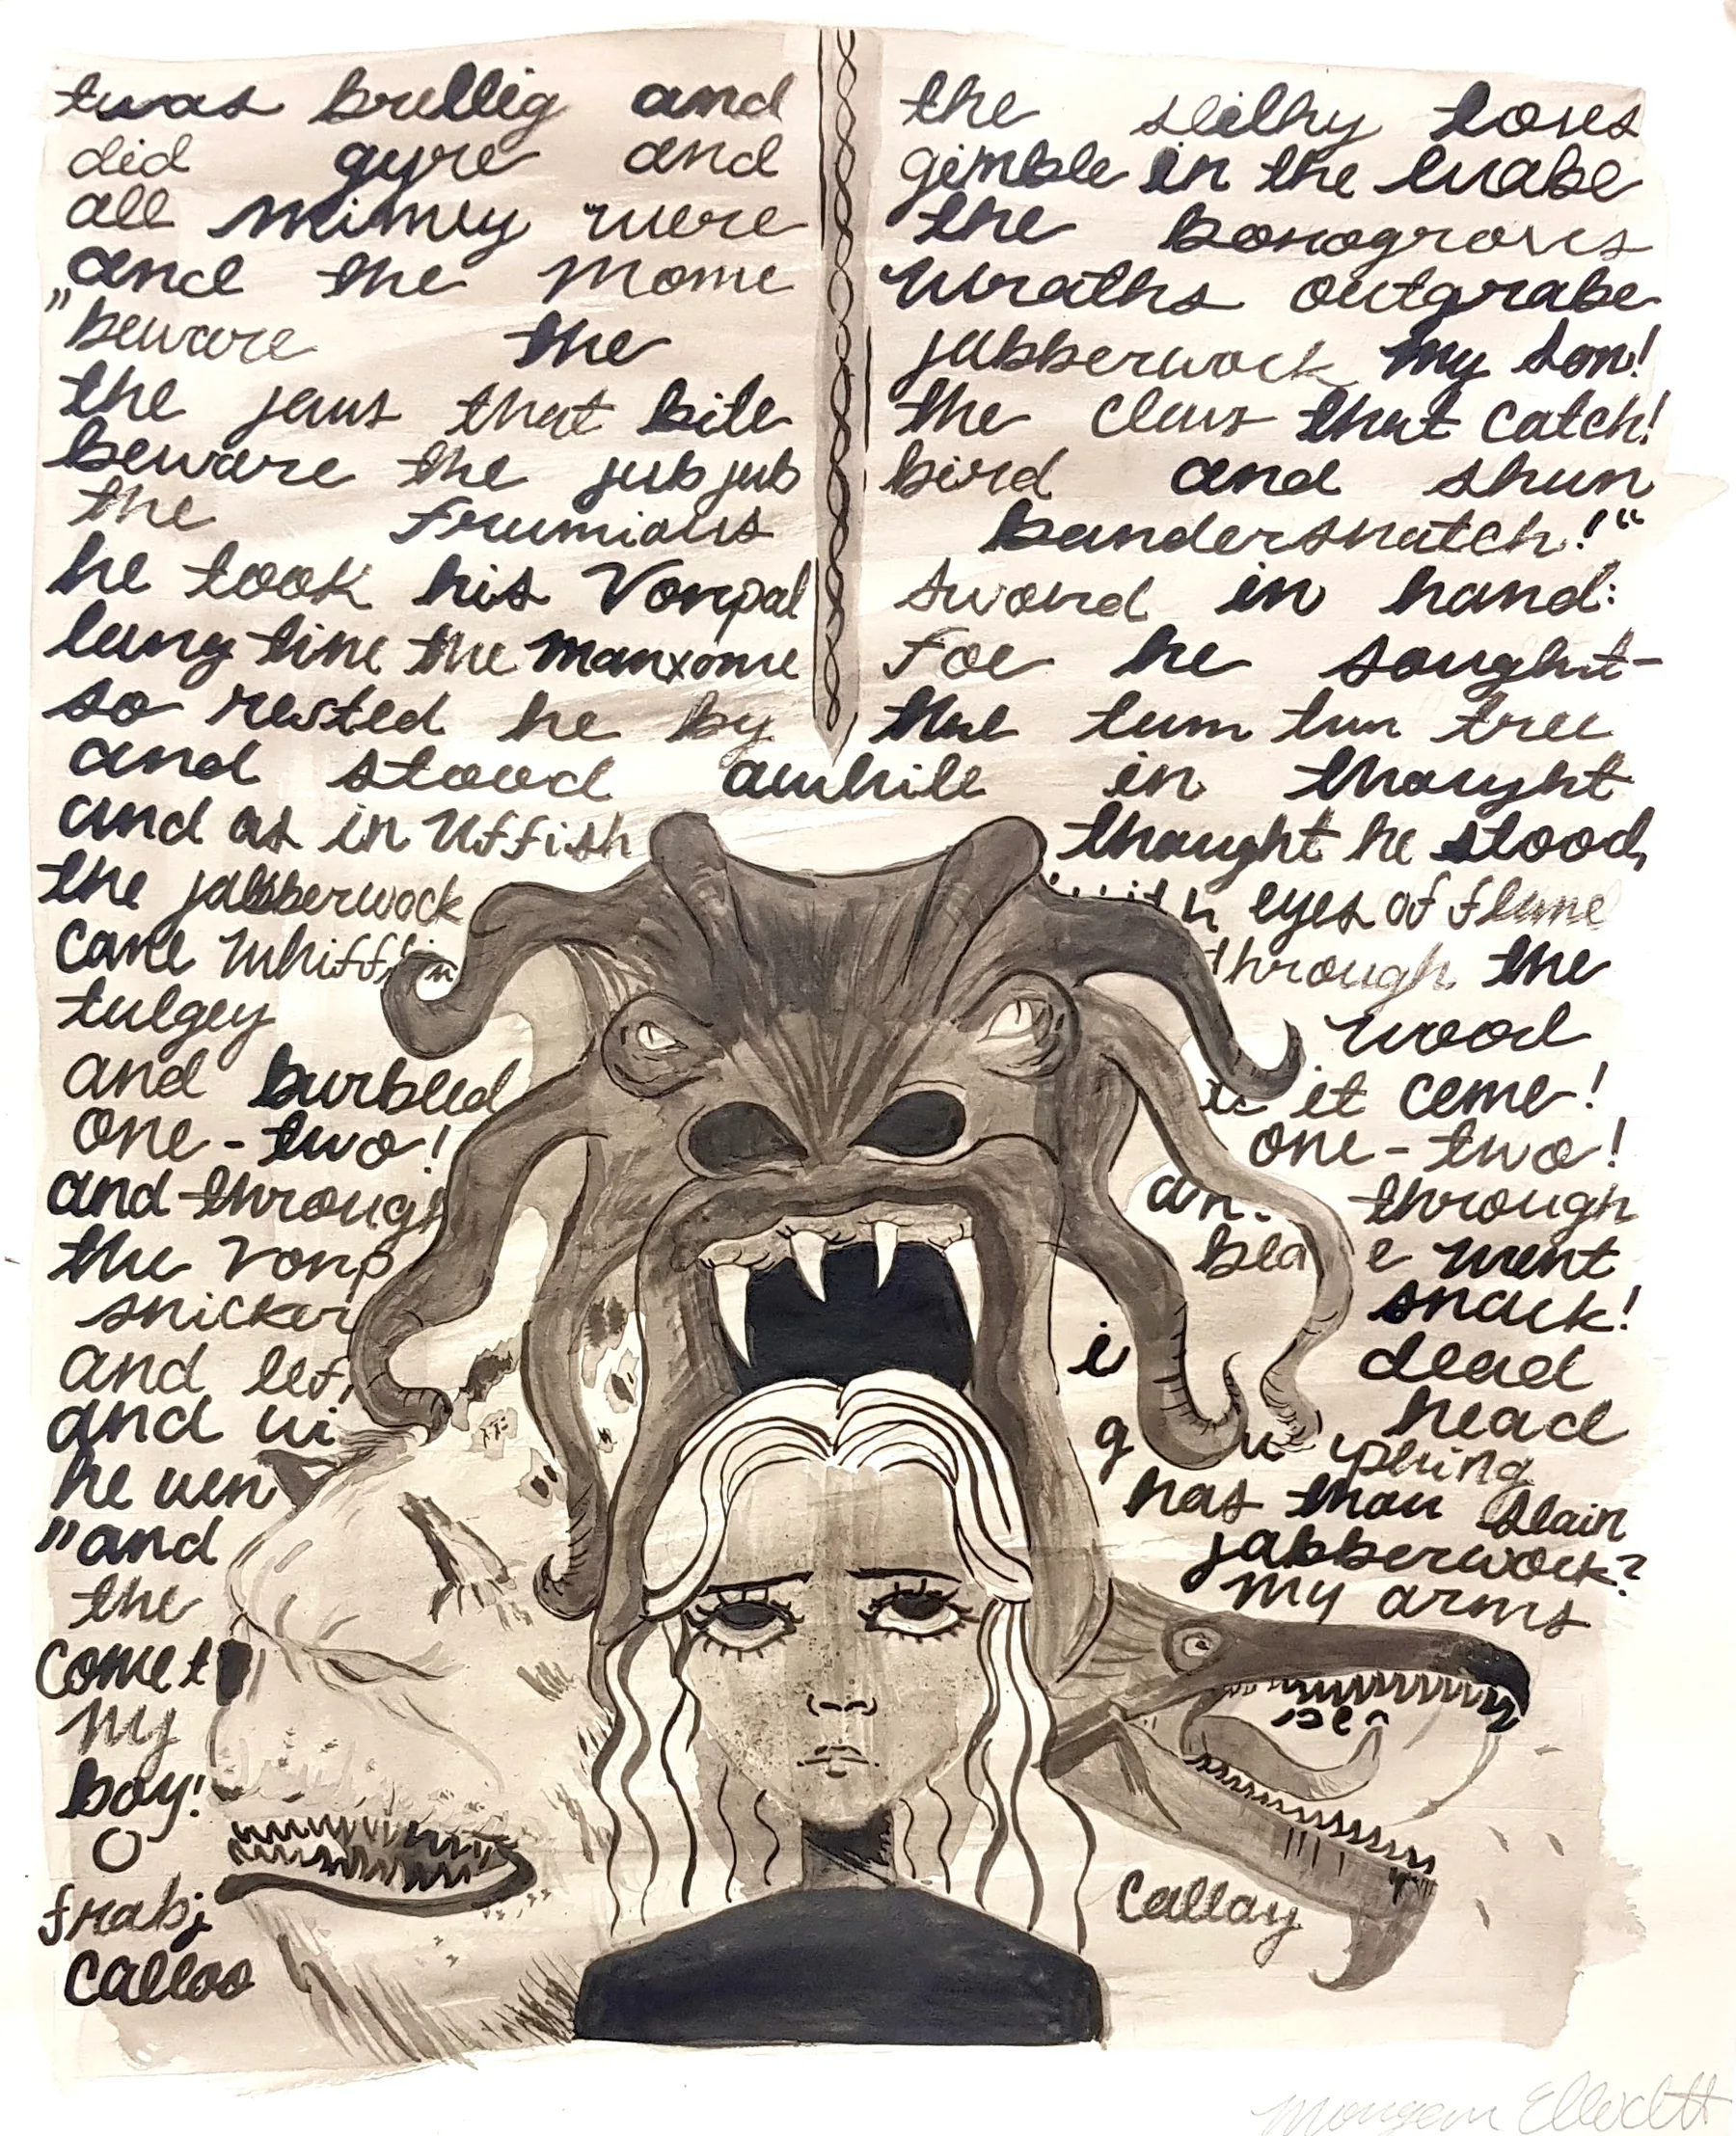 twas brillig and the slithy toves
did gyre and gimble in the wabe
all mimey were the bonogroves
and the Mome wraths outgrabe
"beware the jabberwock my son!
the jaws that bite the claws that catch!
beware the jubjub bird and shun
the frumious bandersnatch!"
he took his Vorpal sword in hand:
long time the manxome foe he sought-
so rested he by the tum tum tree
and stood awhile in thought
and as in uffish thought he stood,
the jabberwock with eyes of flame
came whifflin through the
tulgey wood
and burbled it came!
one-two! one-two!
and through an through
the vorp bla e went
snicker snack!
and lef i dead
and wi head
he wen g phing
"and has thou slain
the jabberwock?
come t my arms
my
boy!
O
frabj
calloo callay
Morgan Elliott